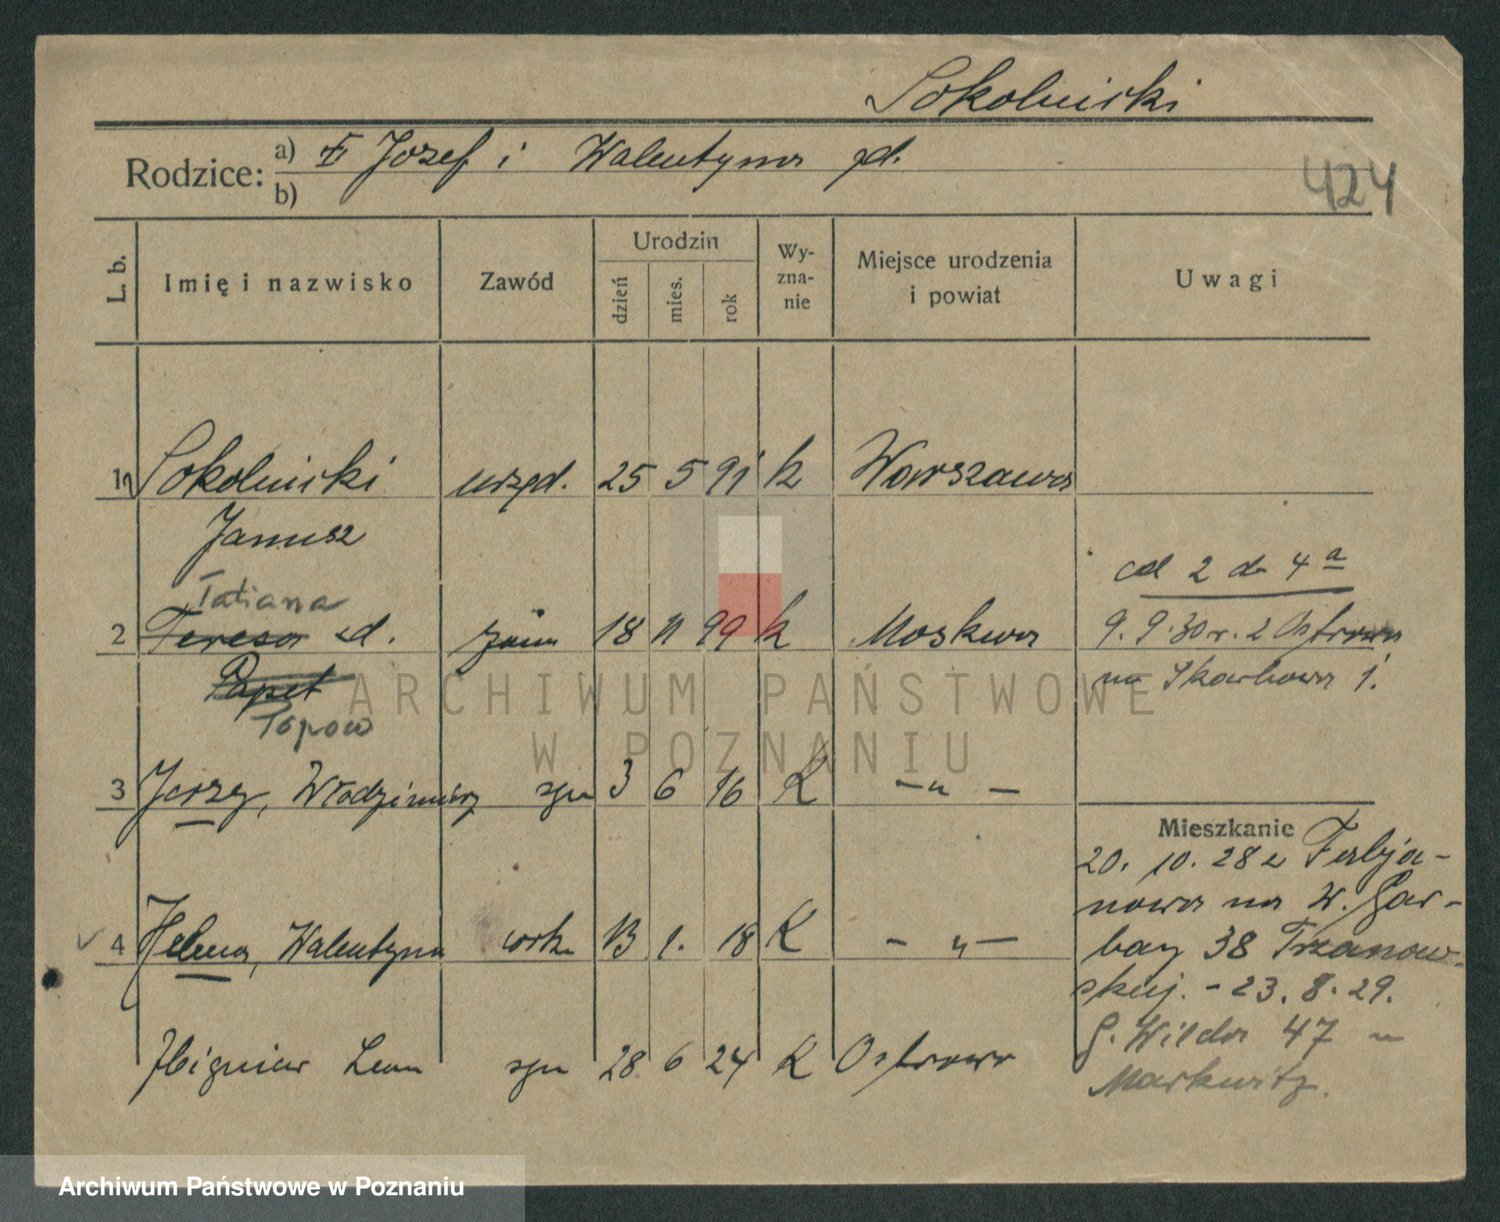 Sokolnicki
Rodzice: a) Józef i Walentyna
b)
424
L. b. Imię i nazwisko Zawód Urodzin dzień mies. rok Wyznanie Miejsce urodzenia i powiat Uwagi
1 Sokolnicki urzęd. 25 5 91 k Warszawa
Janusz
od 2 do 4a
Tatiana
2 Teresa żona 18 11 99 k Moskwa 9.9.30
Papet
na Skarbowa 1.
Popow
3 Jerzy, Włodzimierz syn 3 6 16 K -"-
Mieszkanie
20. 10. 28 z Fabja-
4 Helena, Walentyna córka 13 1. 18 K -"-
nowa na W. Gar-
bary 38
skiej. - 23. 8. 29.
Zbigniew Leon syn 28 6 24 K Ostrowo
G. Wilda 47 u
Markwitz.
ARCHIWUM PAŃSTWOWE
W POZNANIU
Archiwum Państwowe w Poznaniu